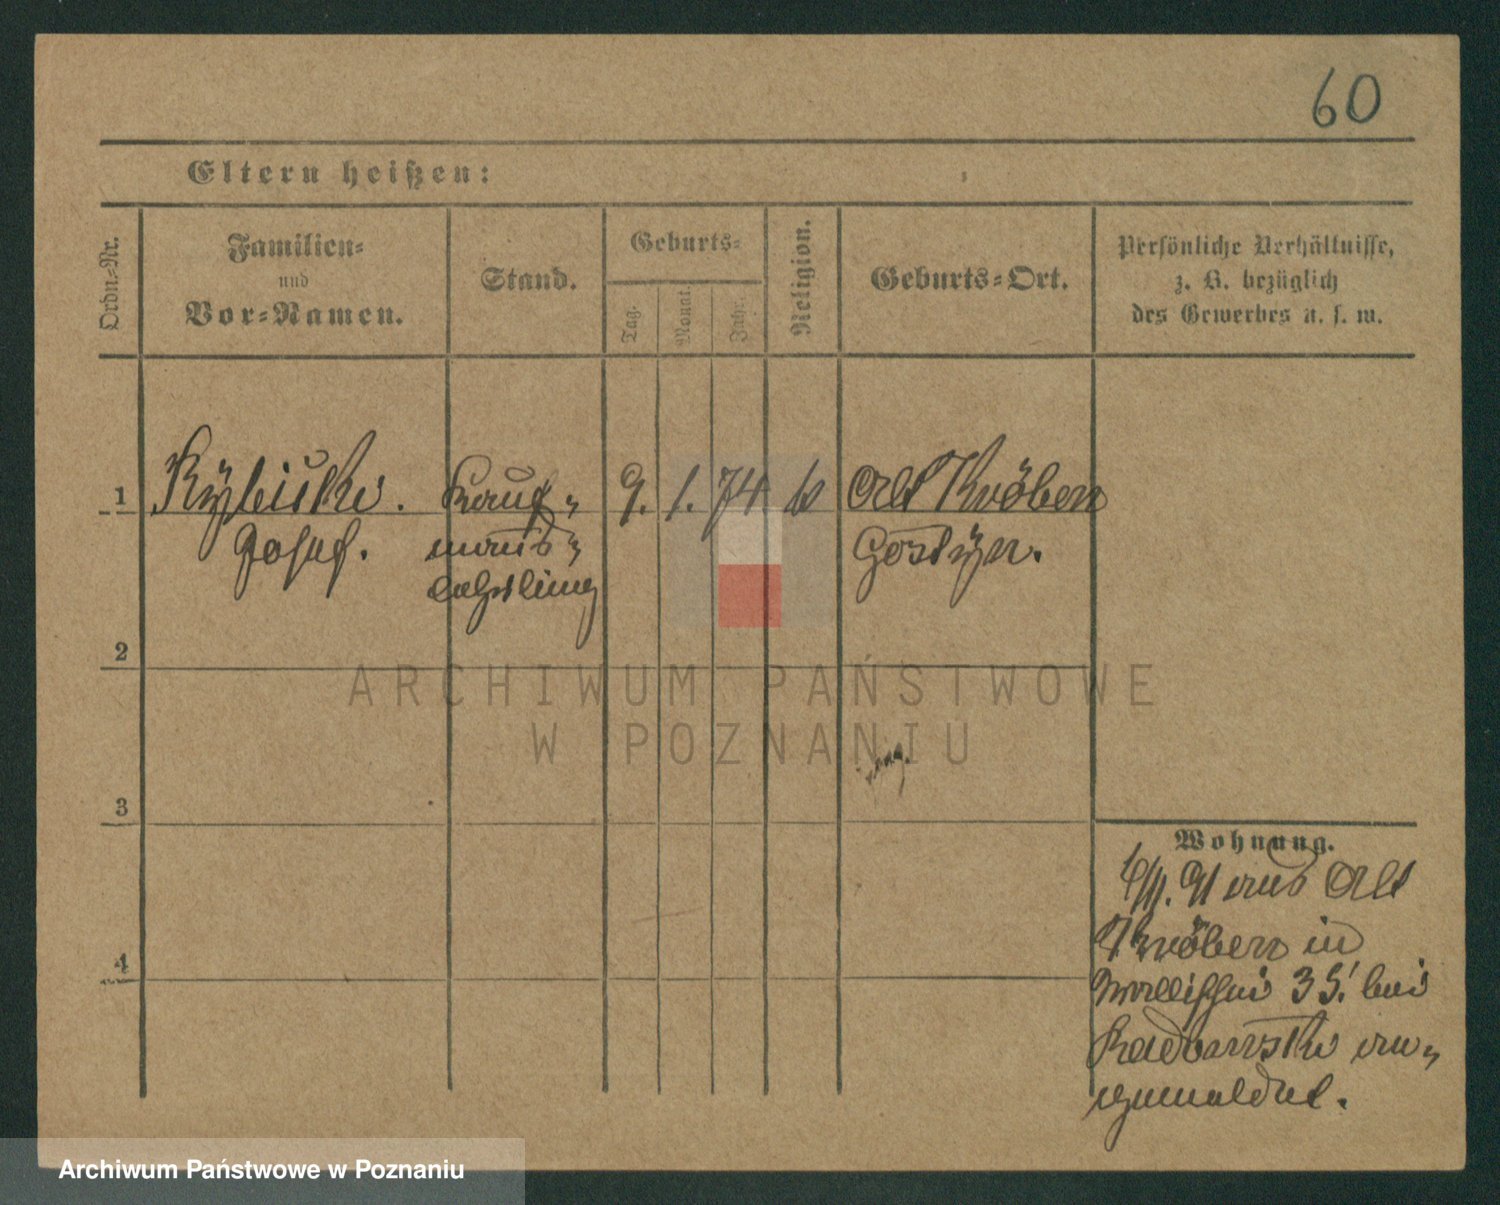 60
Eltern heißen:
Ordn.-Nr.
Familien-
und
Vor-Namen.
Stand.
Geburts-
Tag.
Monat.
Jahr.
Religion.
Geburts-Ort.
Persönliche Verhältnisse,
z. B. bezüglich
des Gewerbes u. s. w.
1
Josef.
Kauf-
manns-
lehrling
9. 1. 74
k
Alt Kröben
Gostyn.
2
3
4
Wohnung.
91 aus Alt
Kröben in
Wallischei 35. bei
an-
gemeldet.
ARCHIWUM PAŃSTWOWE
W POZNANIU
Archiwum Państwowe w Poznaniu